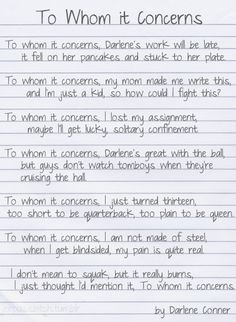 To Whom it Concerns
To whom it concerns, Darlene's work will be late,
it fell on her pancakes and stuck to her plate.
To whom it concerns, my mom made me write this,
and I'm just a kid, so how could I fight this?
To whom it concerns, I lost my assignment,
maybe I'll get lucky, solitary confinement
To whom it concerns, Darlene's great with the ball,
but guys don't watch tomboys when they're
cruising the hall.
To whom it concerns, I just turned thirteen,
too short to be quarterback, too plain to be queen.
To whom it concerns, I am not made of steel,
when I get blindsided, my pain is quite real.
I don't mean to squak, but it really burns,
I just thought I'd mention it, To whom it concerns.
by Darlene Conner